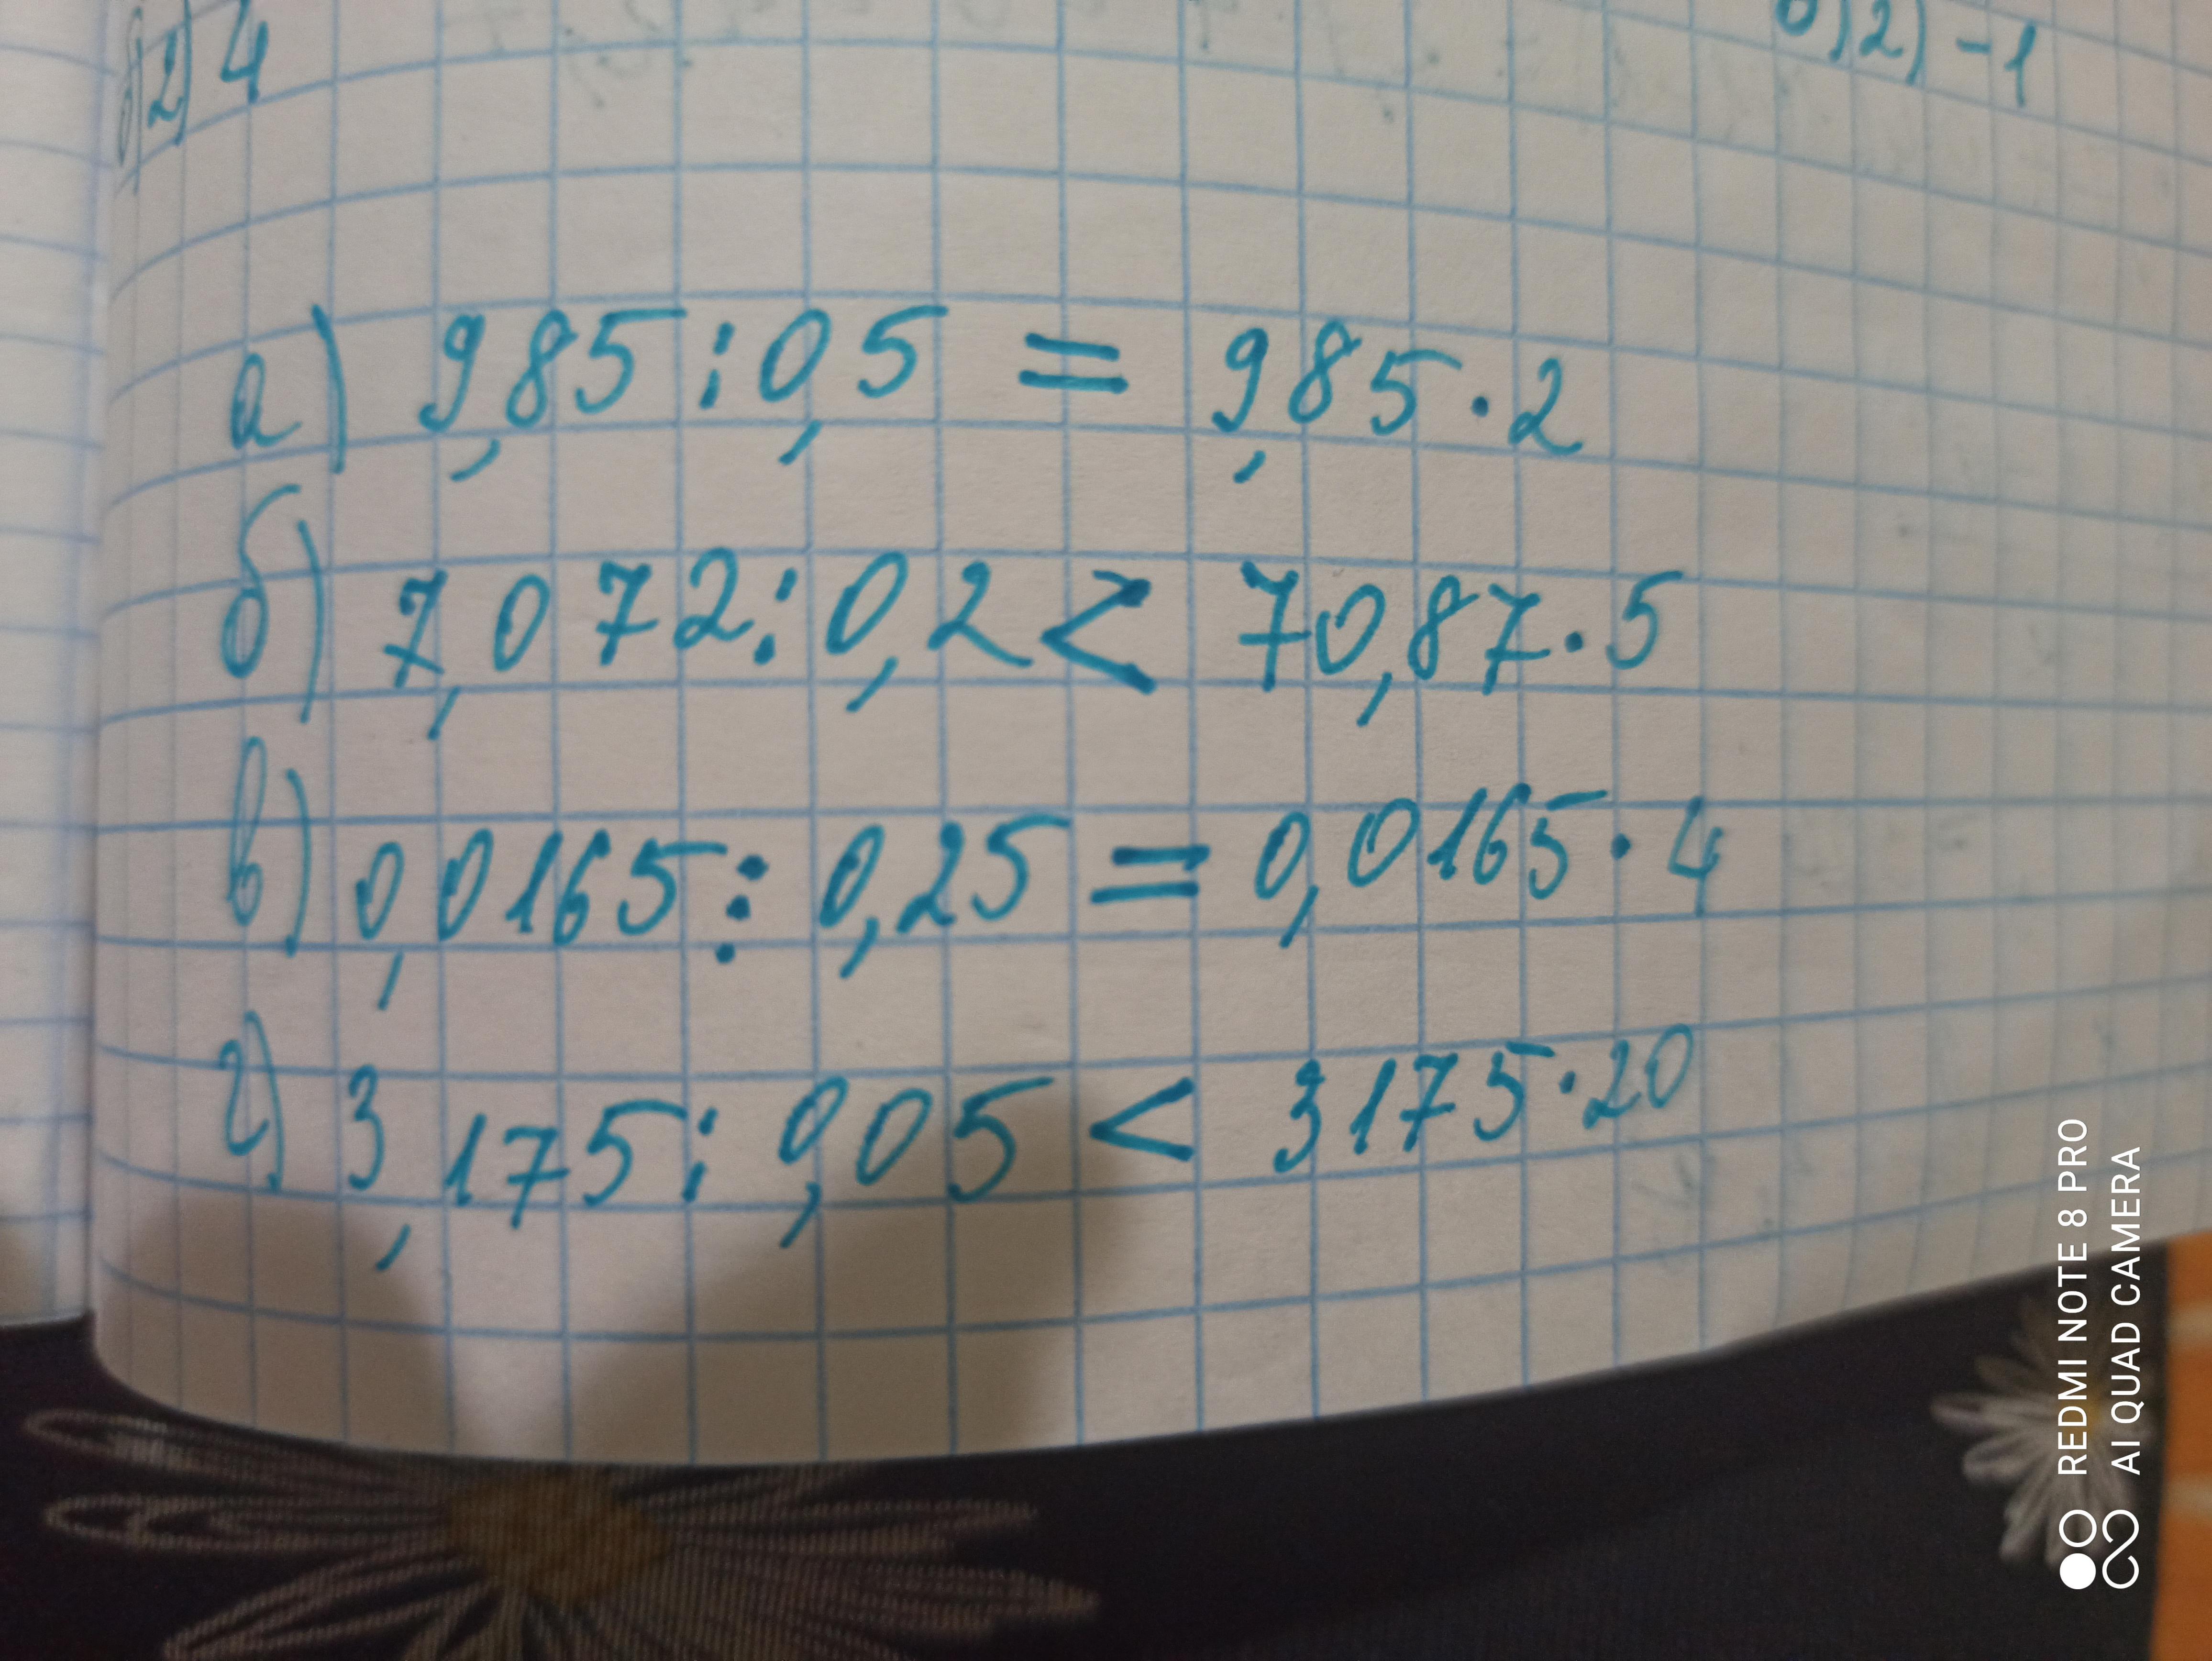 в)2) 4
в)2) -1
а) 9,85 : 0,5 = 9,85 · 2
б) 7,072 : 0,2 < 70,87 · 5
в) 0,0165 : 0,25 = 0,0165 · 4
г) 3,175 : 0,05 < 3175 · 20
REDMI NOTE 8 PRO
AI QUAD CAMERA